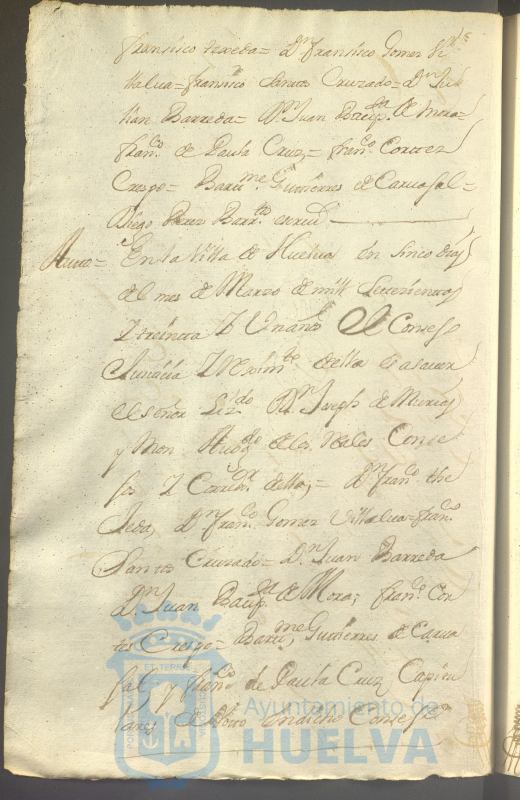 Francisco texeda= Dn Francisco Gomez Vi
llalua= Francisco Santos Cruzado= Dn Ju
Barreda= Dn Juan Baupta de Mora=
Franco de Paula Cruz,= Franco Cortez
Crespo= Barme Gutierres de Caruajal=
Diego Perez
Auto= En la Villa de Huelua en sinco dias
del mes de Marzo de mill Setezientos
Y treinta Y Un año El Consejo
Justicia Y Reximto della es a sauer
el señor Lizdo Dn Joseph de
y Abogdo de los Reales Conse
jos Y Corrdor della,= Dn Franco the
jeda, Dn Franco Gomez Villalua= Franco
Santos Cruzado= Dn Juan Barreda
Dn Juan Baupta de Mora; Franco Cor
tes Crespo= Barme Gutierres de Carua
jal y Franco de Paula Cruz Capitu
lares en dicho Consejo
PORTUS MARIS ET TERRAE CUSTODIA
Ayuntamiento de
HUELVA